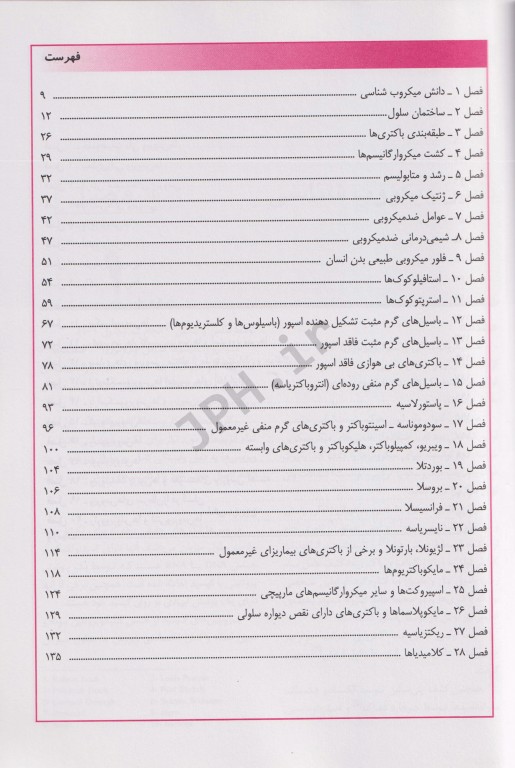 فهرست
فصل ۱ ـ دانش میکروب شناسی ........ ۹
فصل ۲ ـ ساختمان سلول ........ ۱۲
فصل ۳ ـ طبقه‌بندی باکتری‌ها ........ ۲۶
فصل ۴ ـ کشت میکروارگانیسم‌ها ........ ۲۹
فصل ۵ ـ رشد و متابولیسم ........ ۳۲
فصل ۶ ـ ژنتیک میکروبی ........ ۳۷
فصل ۷ ـ عوامل ضدمیکروبی ........ ۴۲
فصل ۸ـ شیمی‌درمانی ضدمیکروبی ........ ۴۷
فصل ۹ ـ فلور میکروبی طبیعی بدن انسان ........ ۵۱
فصل ۱۰ ـ استافیلوکوک‌ها ........ ۵۴
فصل ۱۱ ـ استرپتوکوک‌ها ........ ۵۹
فصل ۱۲ ـ باسیل‌های گرم مثبت تشکیل دهنده اسپور (باسیلوس‌ها و کلستریدیوم‌ها) ........ ۶۷
فصل ۱۳ ـ باسیل‌های گرم مثبت فاقد اسپور ........ ۷۲
فصل ۱۴ ـ باکتری‌های بی هوازی فاقد اسپور ........ ۷۸
فصل ۱۵ ـ باسیل‌های گرم منفی روده‌ای (انتروباکتریاسه) ........ ۸۱
فصل ۱۶ ـ پاستورلاسیه ........ ۹۳
فصل ۱۷ ـ سودوموناسه ـ اسینتوباکتر و باکتری‌های گرم منفی غیرمعمول ........ ۹۶
فصل ۱۸ ـ ویبریو، کمپیلوباکتر، هلیکوباکتر و باکتری‌های وابسته ........ ۱۰۰
فصل ۱۹ ـ بوردتلا ........ ۱۰۴
فصل ۲۰ ـ بروسلا ........ ۱۰۶
فصل ۲۱ ـ فرانسیسلا ........ ۱۰۸
فصل ۲۲ ـ نایسریاسه ........ ۱۱۰
فصل ۲۳ ـ لژیونلا، بارتونلا و برخی از باکتری‌های بیماریزای غیرمعمول ........ ۱۱۴
فصل ۲۴ ـ مایکوباکتریوم‌ها ........ ۱۱۸
فصل ۲۵ ـ اسپیروکت‌ها و سایر میکروارگانیسم‌های مارپیچی ........ ۱۲۴
فصل ۲۶ ـ مایکوپلاسماها و باکتری‌های دارای نقص دیواره سلولی ........ ۱۲۹
فصل ۲۷ ـ ریکتزیاسیه ........ ۱۳۲
فصل ۲۸ ـ کلامیدیاها ........ ۱۳۵
JPH.ir